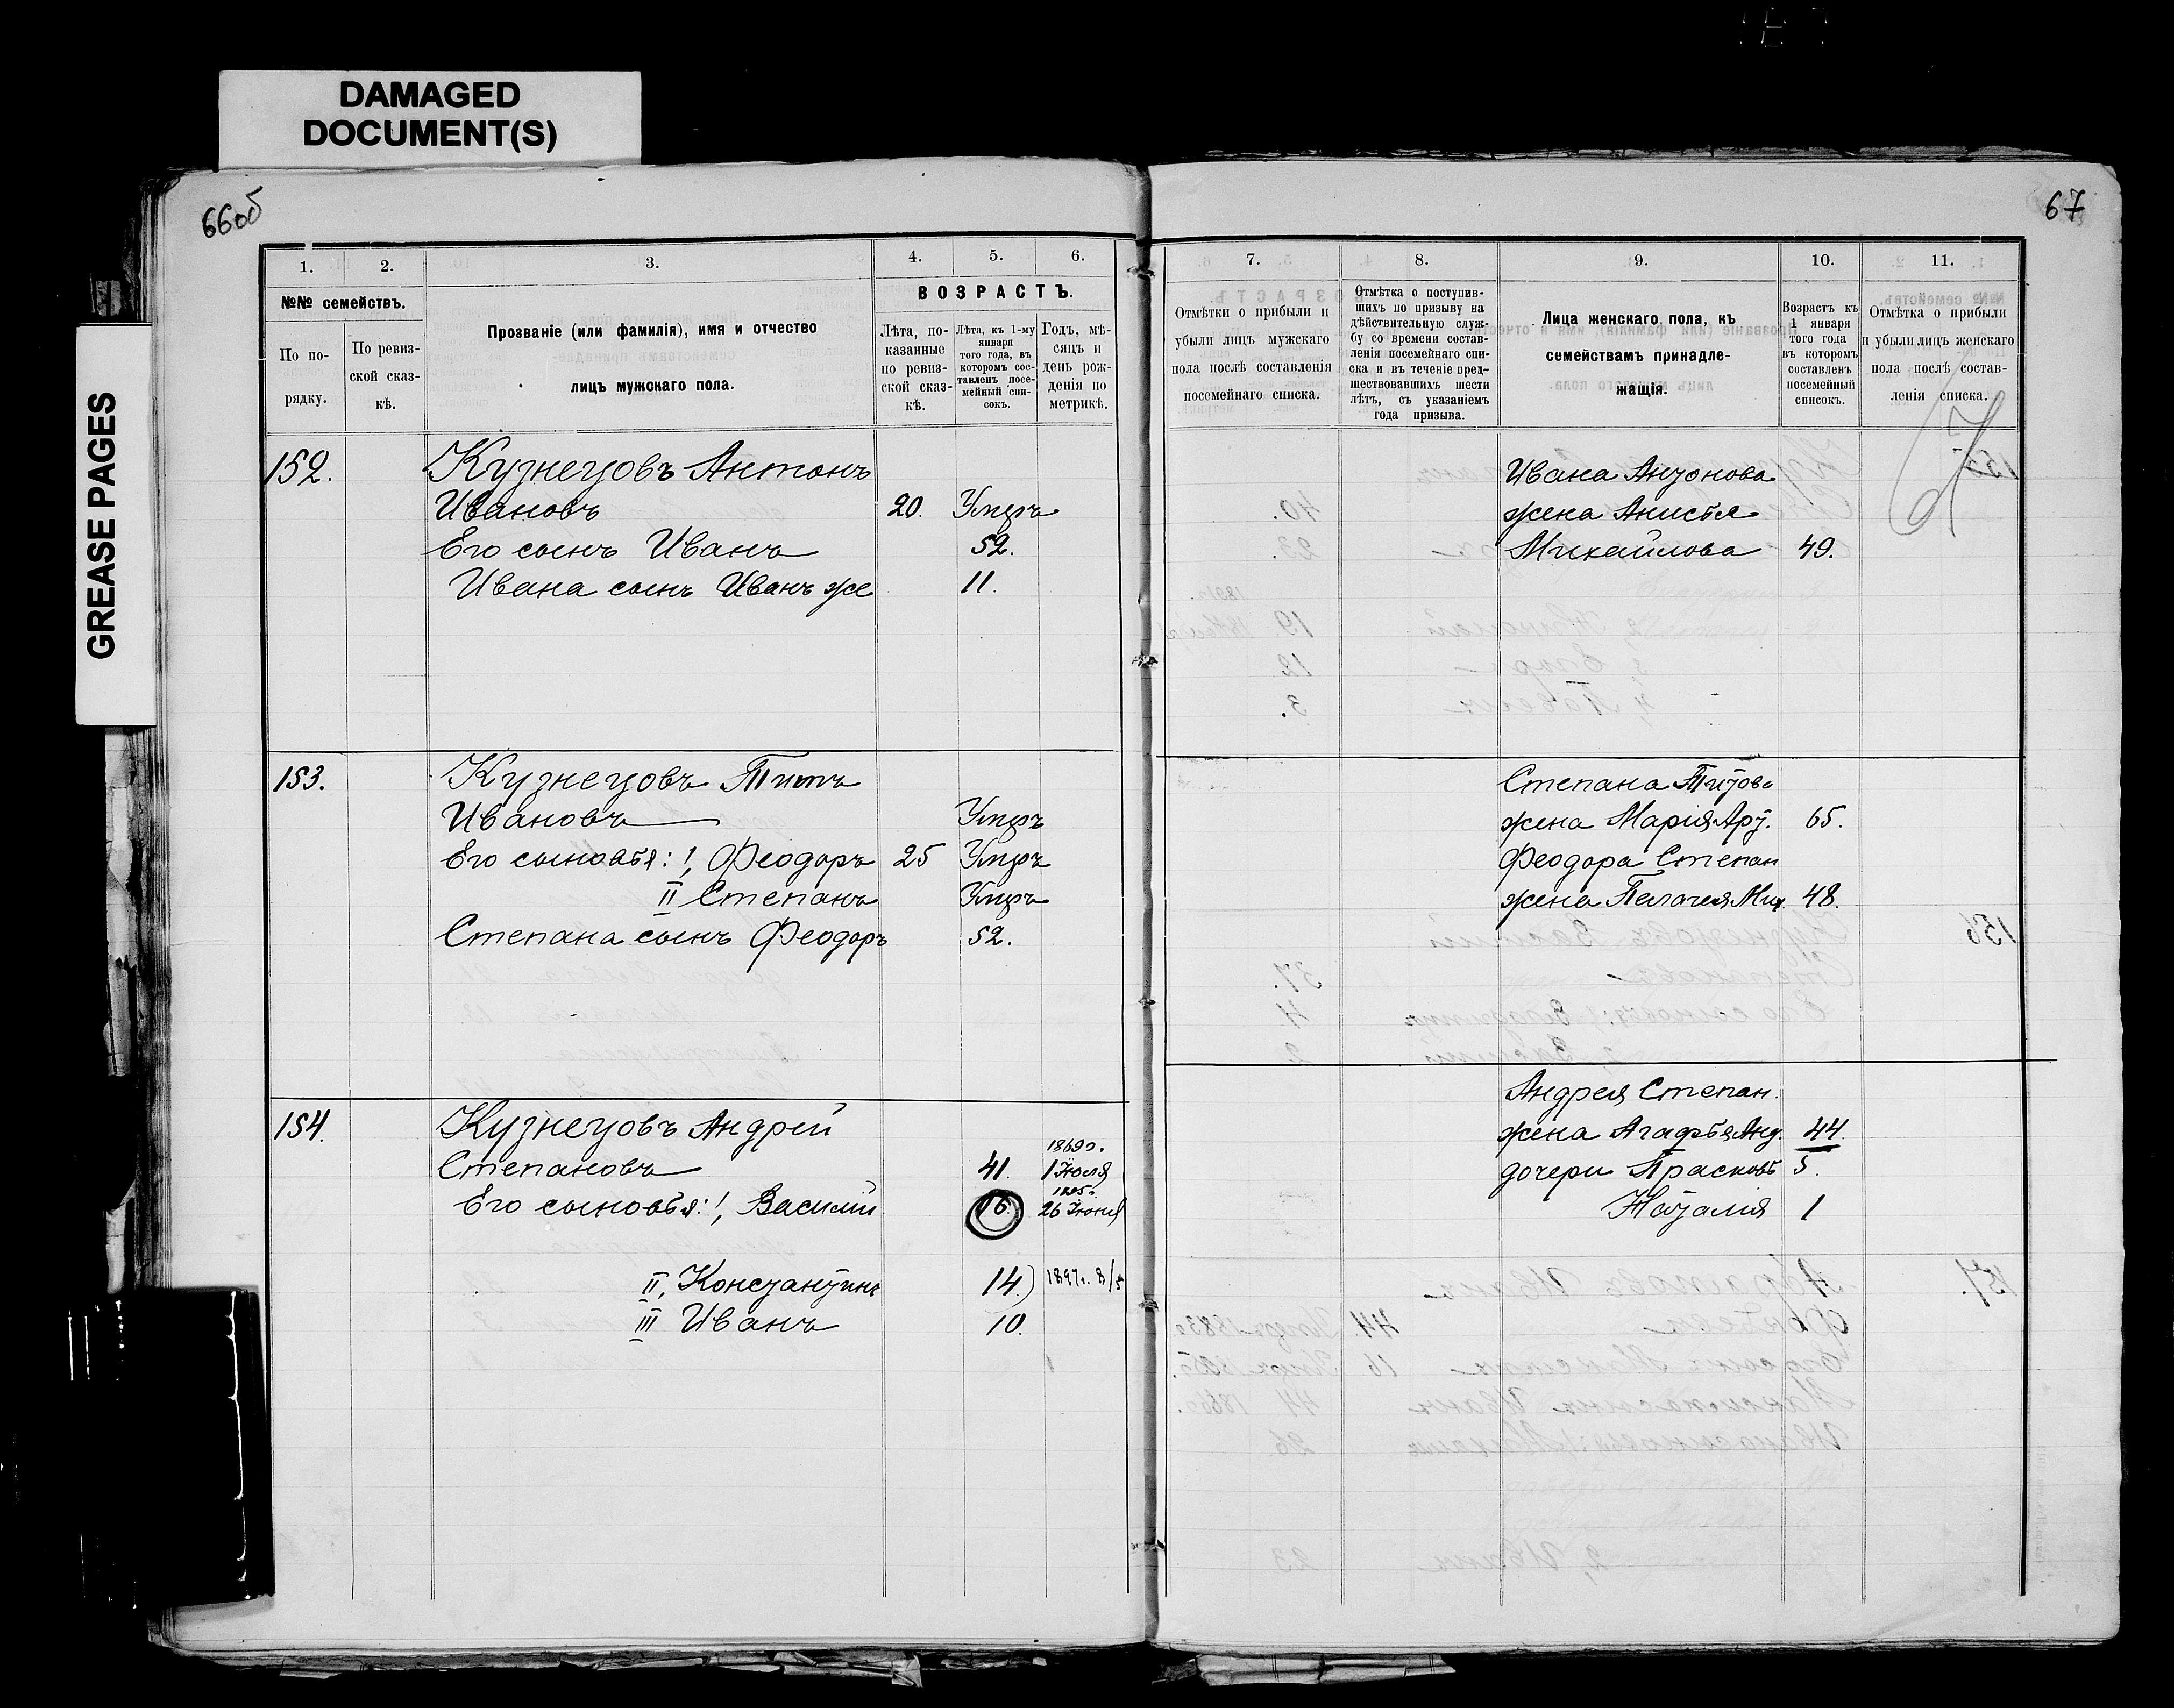 DAMAGED
DOCUMENT(S)
GREASE PAGES
66об
67
1.
2.
3.
4.
5.
6.
№№ семействъ.
По по-
рядку.
По ревиз-
ской сказ-
кѣ.
Прозваніе (или фамилія), имя и отчество
лицъ мужскаго пола.
ВОЗРАСТЪ.
Лѣта, по-
казанные
по ревиз-
ской сказ-
кѣ.
Лѣта, къ 1-му
января
того года, въ
которомъ сос-
тавленъ посе-
мейный спи-
сокъ.
Годъ, мѣ-
сяцъ и
день рож-
денія по
метрикѣ.
152.
Кузнецовъ Антонъ
Ивановъ 20. Умеръ
Его сынъ Иванъ 52.
Ивана сынъ Иванъ же 11.
153.
Кузнецовъ Титъ
Ивановъ Умеръ
Его сыновья: 1, Феодоръ 25 Умеръ
II Степанъ Умеръ
Степана сынъ Феодоръ 52.
154.
Кузнецовъ Андрей
1869г.
Степановъ 41. 1 Іюля
Его сыновья: 1, Василій 16. 26 Іюня
II, Константинъ 14. 1897г. 8/5
III Иванъ 10.
7.
8.
9.
10.
11.
Отмѣтки о прибыли и
убыли лицъ мужскаго
пола послѣ составленія
посемейнаго списка.
Отмѣтка о поступив-
шихъ по призыву на
дѣйствительную служ-
бу со времени состав-
ленія посемейнаго спи-
ска и въ теченіе пред-
шествовавшихъ шести
лѣтъ, съ указаніемъ
года призыва.
Лица женскаго пола, къ
семействамъ принадле-
жащія.
Возрастъ къ
1 января
того года
въ которомъ
составленъ
посемейный
списокъ.
Отмѣтка о прибыли
и убыли лицъ женскаго
пола послѣ состав-
ленія списка.
Ивана Антонова
жена Анисья
Михайлова 49.
Степана Титова
жена Марія Арт. 65.
Феодора Степан
жена Пелагея Мих. 48.
Андрея Степан.
жена Агафья Анд. 44.
дочери Прасковь 5.
Наталия 1